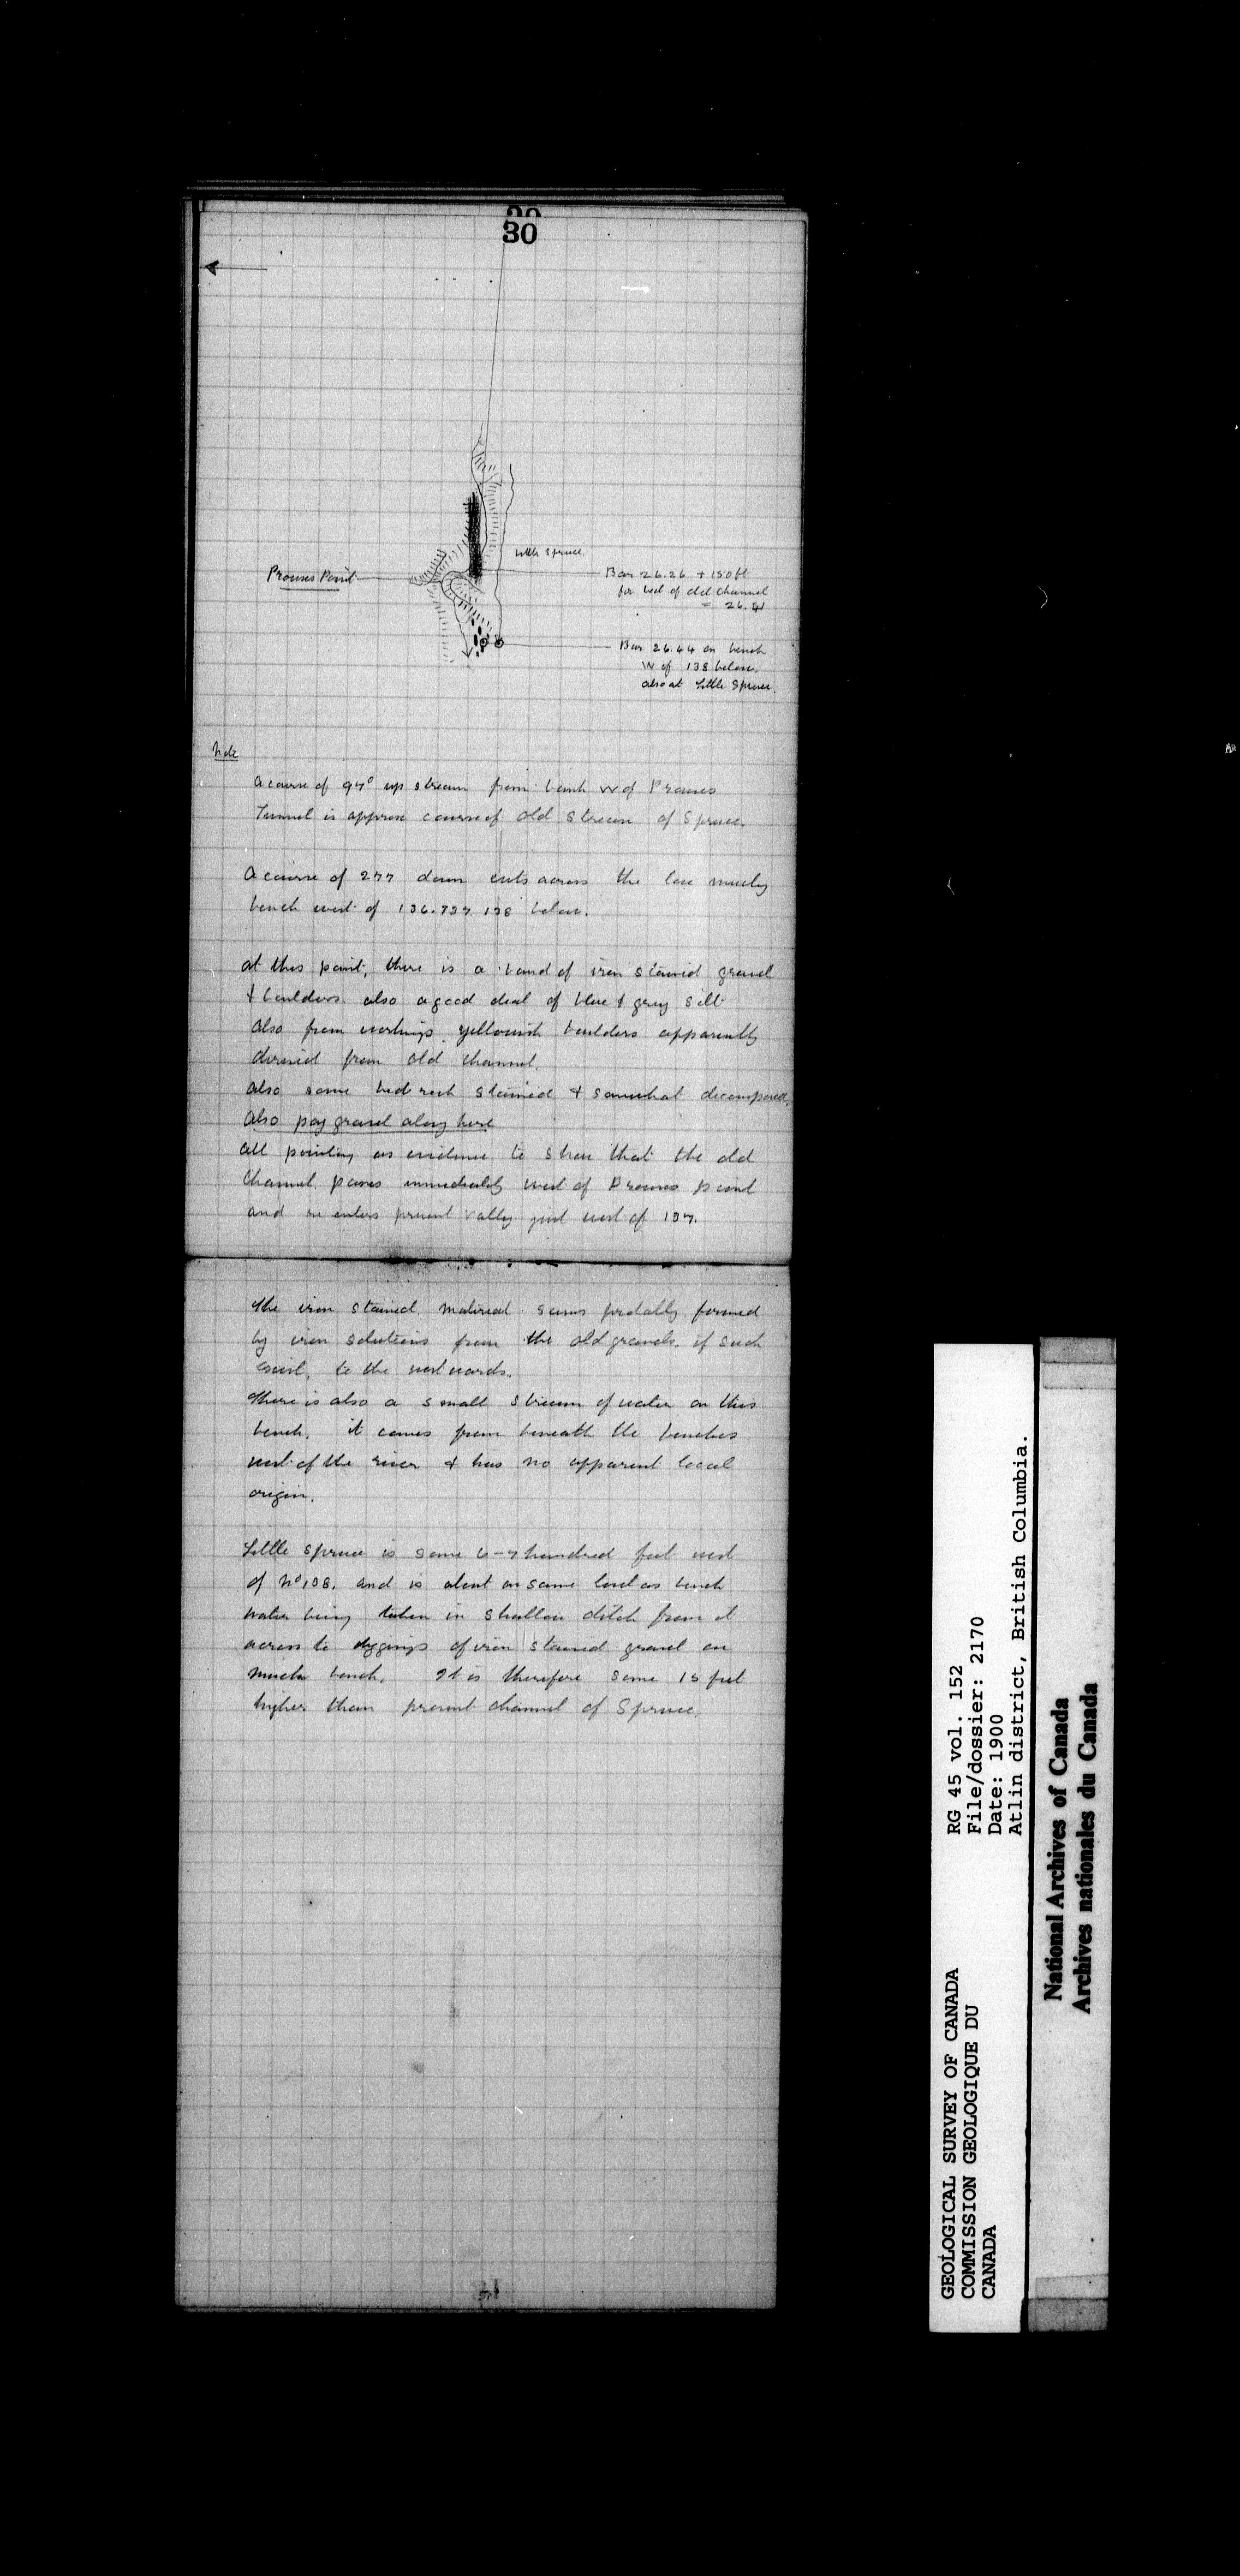 30
Little Spruce
Prouses Point
Bar 26.26 + 150 ft
for bed of old channel
= 26.41
Bar 26.44 on bench
W of 138 below.
also at Little Spruce.
Note
A course of 97° up stream from bench W of Prouses
Tunnel is approx course of old stream of Spruce.
A course of 277 down cuts across the low
bench west of 136. 137. 138 below.
at this point, there is a band of iron stained gravel
& boulders. also a good deal of blue & grey silt
also from workings yellowish boulders apparently
derived from old channel.
also some bed rock stained & somewhat decomposed.
also pay gravel along here
all pointing as evidence to show that the old
channel passes immediately west of Prouses point
and re enters present valley just west of 137.
The iron stained material seems probably formed
by iron solutions from the old gravels, if such
exist, to the westwards.
There is also a small stream of water on this
bench, it comes from beneath the benches
west of the river & has no apparent local
origin.
Little Spruce is some 6-7 hundred feet west
of No 138. and is about on same level as bench
water being taken in shallow ditch from it
across to diggings of iron stained gravel on
bench. It is therefore some 15 feet
higher than present channel of Spruce.
GEOLOGICAL SURVEY OF CANADA
COMMISSION GEOLOGIQUE DU
CANADA
RG 45 vol. 152
File/dossier: 2170
Date: 1900
Atlin district, British Columbia.
National Archives of Canada
Archives nationales du Canada